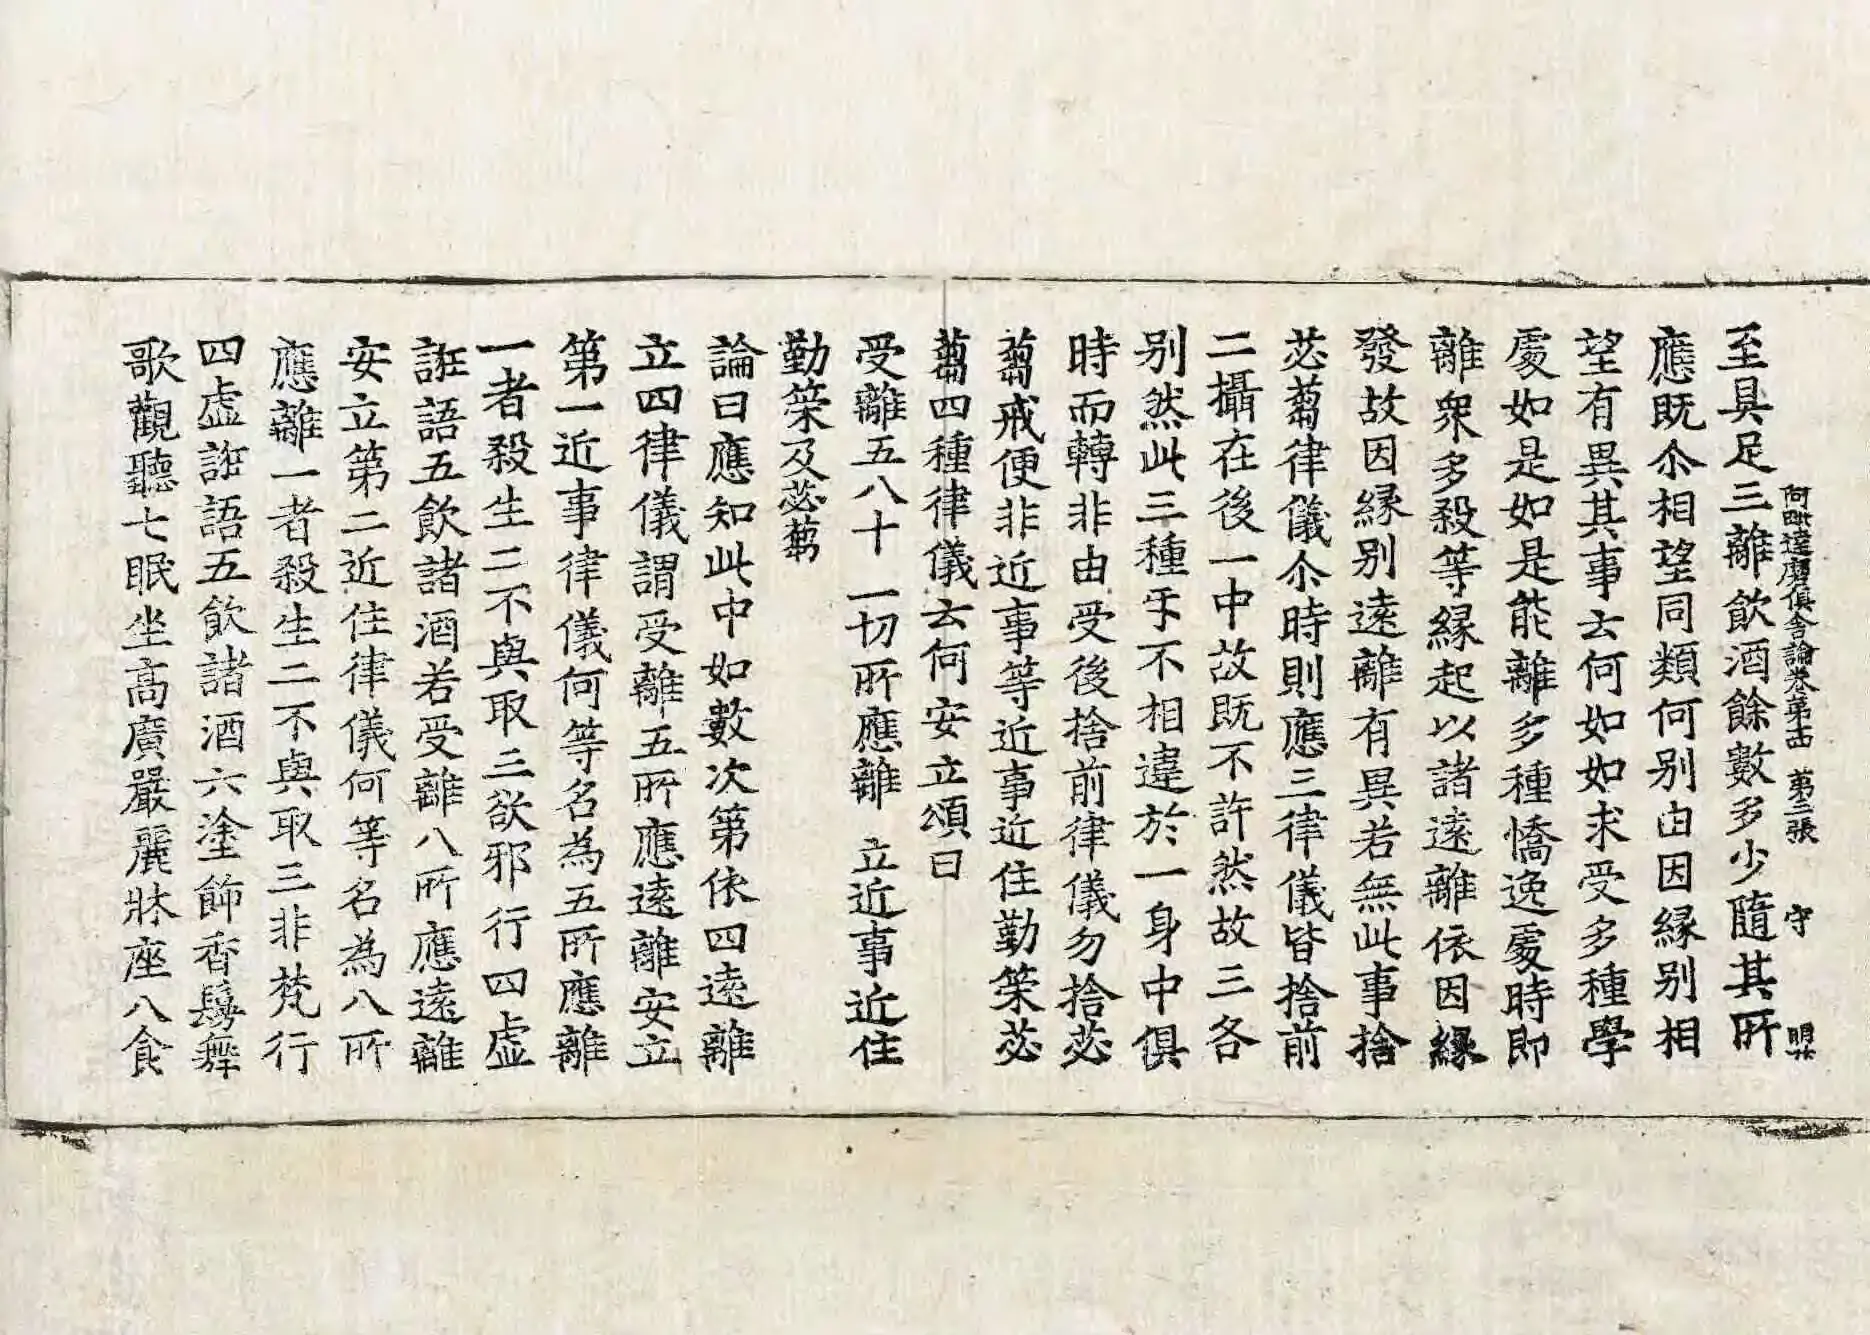 阿毗達磨俱舍論卷第十四　第三張　守　明
至具足三離飲酒餘數多少隨其所
應既尒相望同類何別由因緣別相
望有異其事云何如如求受多種學
處如是如是能離多種憍逸處時即
離衆多殺等緣起以諸遠離依因緣
發故因緣別遠離有異若無此事捨
苾蒭律儀尒時則應三律儀皆捨前
二攝在後一中故既不許然故三各
別然此三種互不相違於一身中俱
時而轉非由受後捨前律儀勿捨苾
蒭戒便非近事等近事近住勤策苾
蒭四種律儀云何安立頌曰
受離五八十　一切所應離　立近事近住
勤策及苾蒭
論曰應知此中如數次第依四遠離
立四律儀謂受離五所應遠離安立
第一近事律儀何等名為五所應離
一者殺生二不與取三欲邪行四虛
誑語五飲諸酒若受離八所應遠離
安立第二近住律儀何等名為八所
應離一者殺生二不與取三非梵行
四虛誑語五飲諸酒六塗飾香鬘舞
歌觀聽七眠坐高廣嚴麗牀座八食